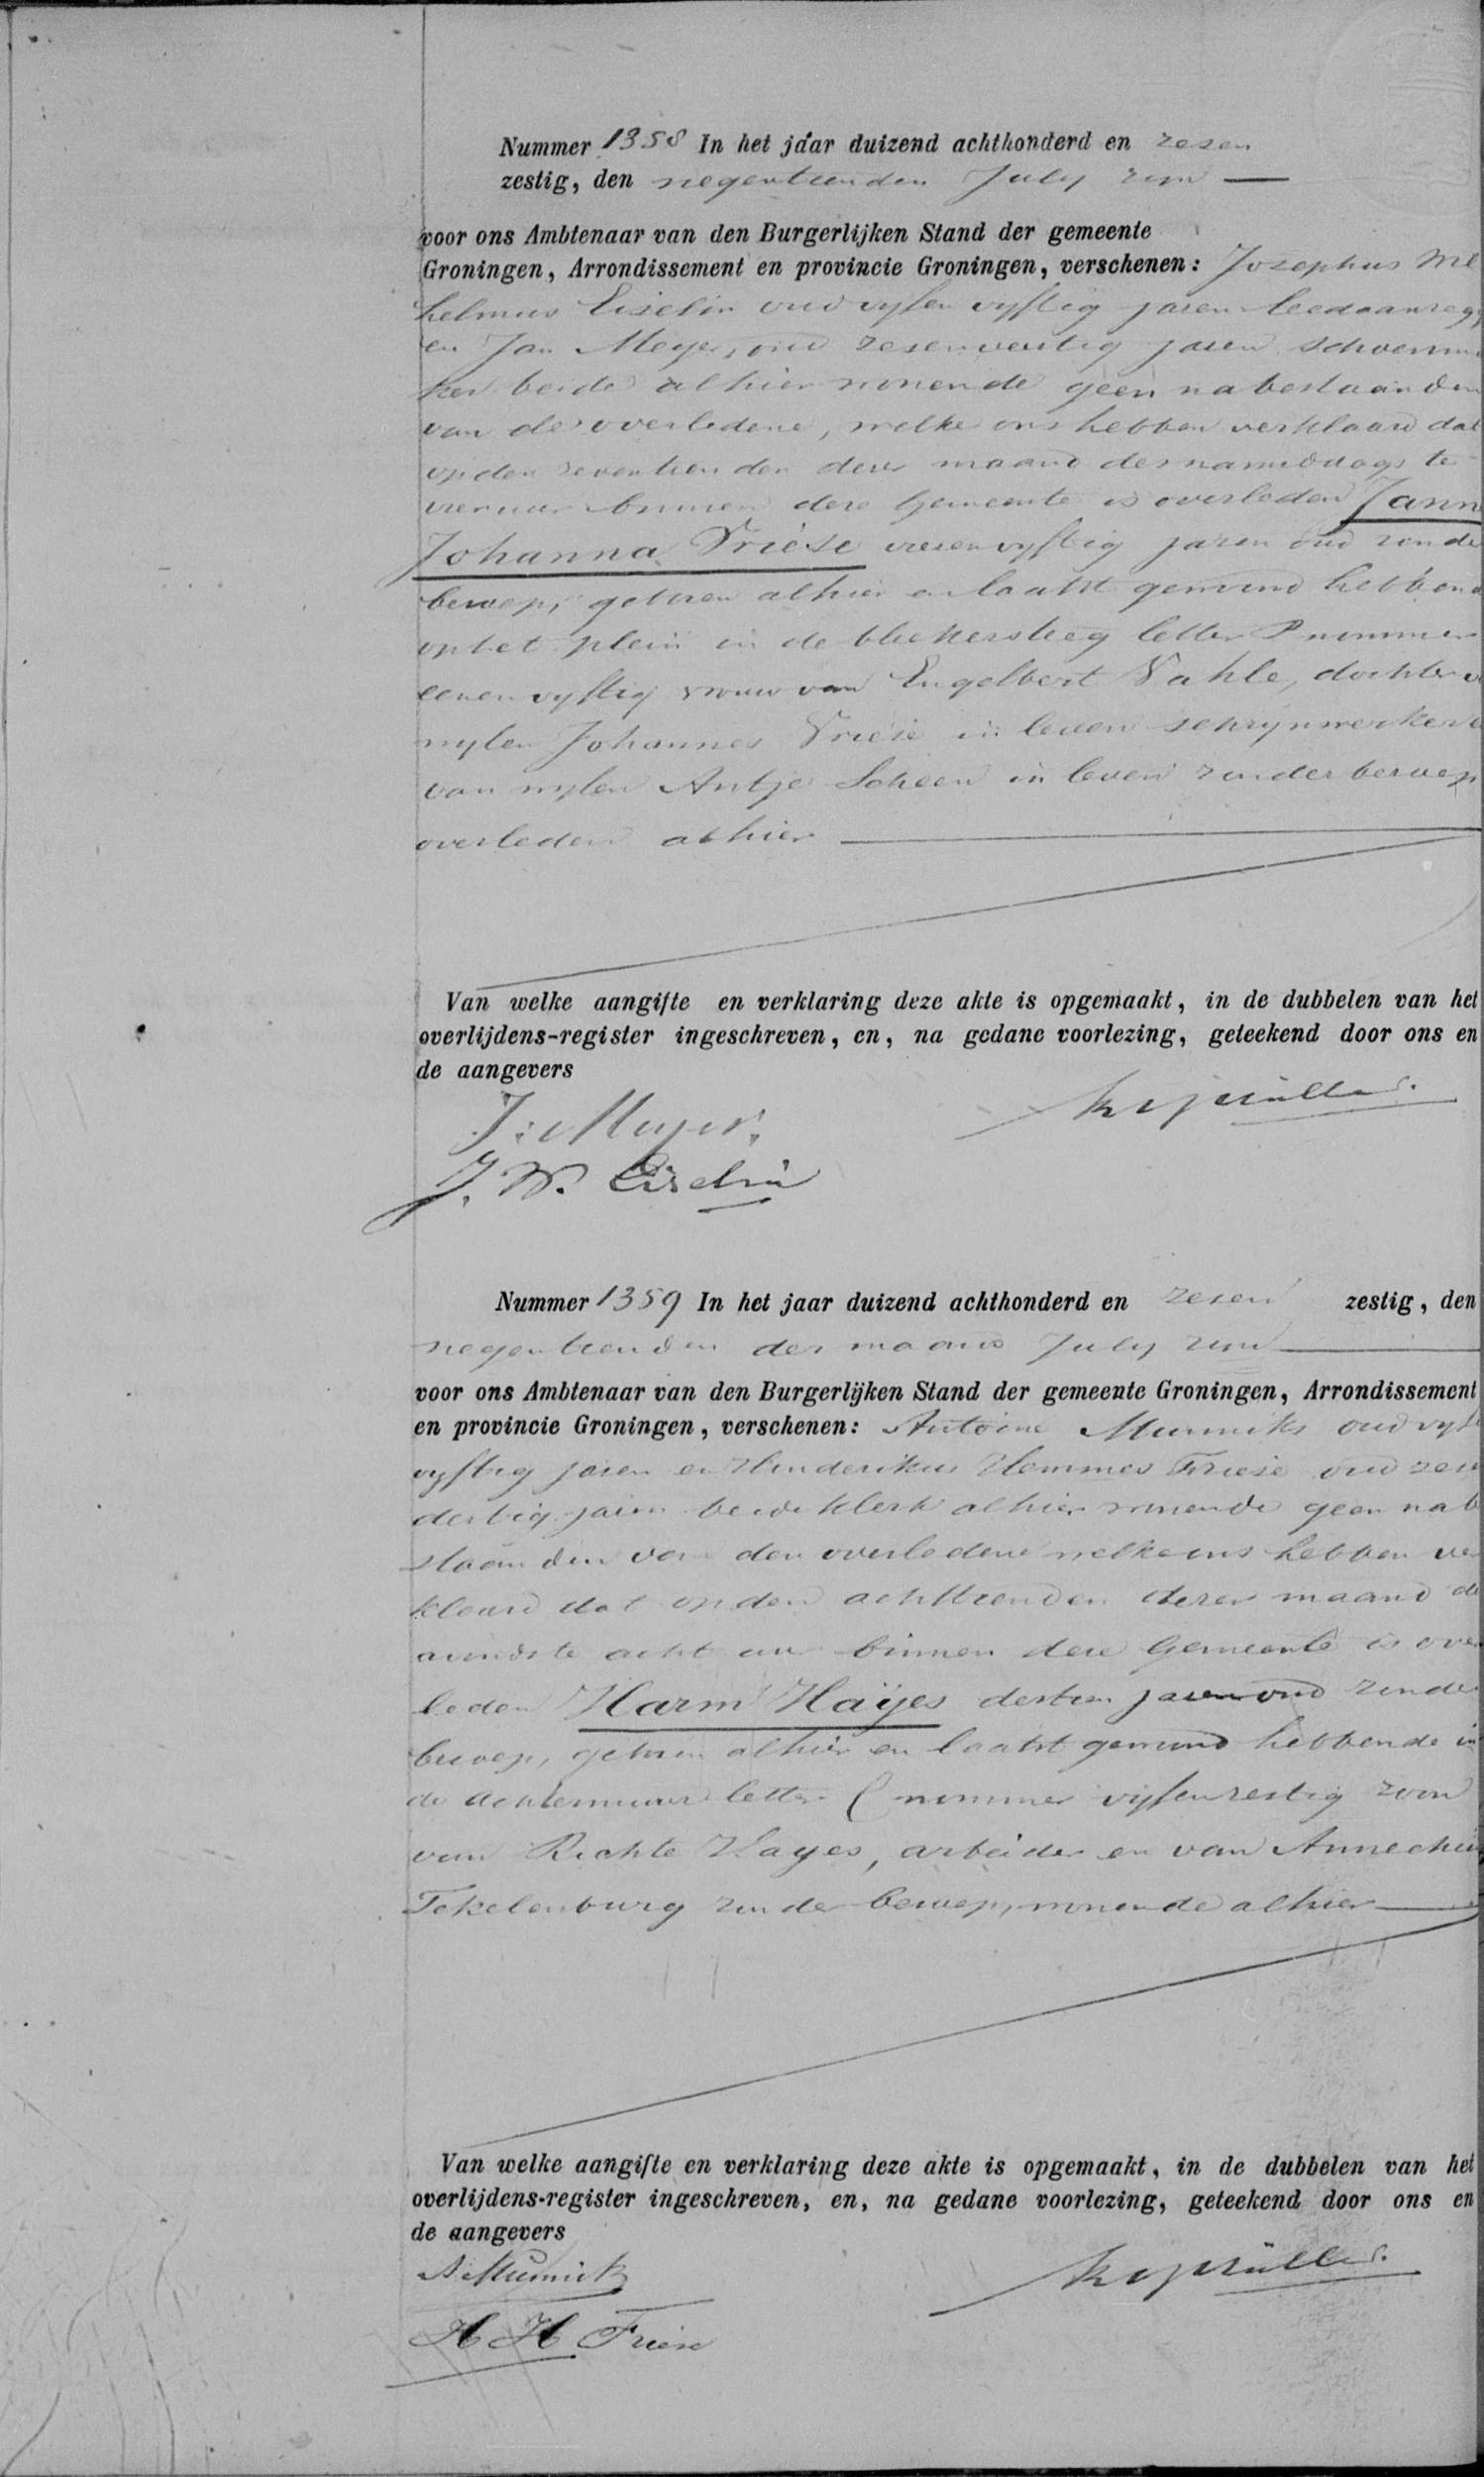 Nummer 1358 In het jaar duizend achthonderd en zesen
zestig, den negentienden July zyn
voor ons Ambtenaar van den Burgerlijken Stand der gemeente
Groningen, Arrondissement en provincie Groningen, verschenen: Josephus Wil
helmus Eiselin oud vyfen vyftig jaren leedaanzegg
en Jan Meyer, oud zesenveertig jaren schoenma
ker beide alhier wonende geen nabestaanden
van de overledene, welke ons hebben verklaard dat
op den zeventienden dezer maand des namiddags te
vier uur binnen deze Gemeente is overleden Jann
Johanna Vriese vieren vyftig jaren oud zonde
beroep, geboren alhier en laatst gewoond hebbend
op het plein in de blekersteeg letter P nummer
eenen vyftig vrouw van Engelbert Vahle, dochter v
wylen Johannes Vriese in leven schrynwerker e
van wylen Antje Scheen in leven zonder beroep
overleden alhier
Van welke aangifte en verklaring deze akte is opgemaakt, in de dubbelen van het
overlijdens-register ingeschreven, en, na gedane voorlezing, geteekend door ons en
de aangevers
J: Meyer.
J. W. Eiselin
Nummer 1359 In het jaar duizend achthonderd en zesen zestig, den
negentienden der maand July zyn
voor ons Ambtenaar van den Burgerlijken Stand der gemeente Groningen, Arrondissement
en provincie Groningen, verschenen: Antoine Munniks oud vyf
vyftig jaren en Hinderikus Hemmes Friese oud zesen
dertig jaren beide klerk alhier wonende geen nab
staanden van den overledene welke ons hebben ver
klaard dat op den achttienden dezer maand de
avonds te acht uur binnen deze Gemeente is over
leden Harm Haÿes dertien jaren oud zonder
beroep, geboren alhier en laatst gewoond hebbende in
de Achtermuur letter C nummer vyfenzestig zoon
van Richte Hayes, arbeider en van Annechien
Tekelenburg zonder beroep, wonende alhier
Van welke aangifte en verklaring deze akte is opgemaakt, in de dubbelen van het
overlijdens-register ingeschreven, en, na gedane voorlezing, geteekend door ons en
de aangevers
A Munnik
H H Friese